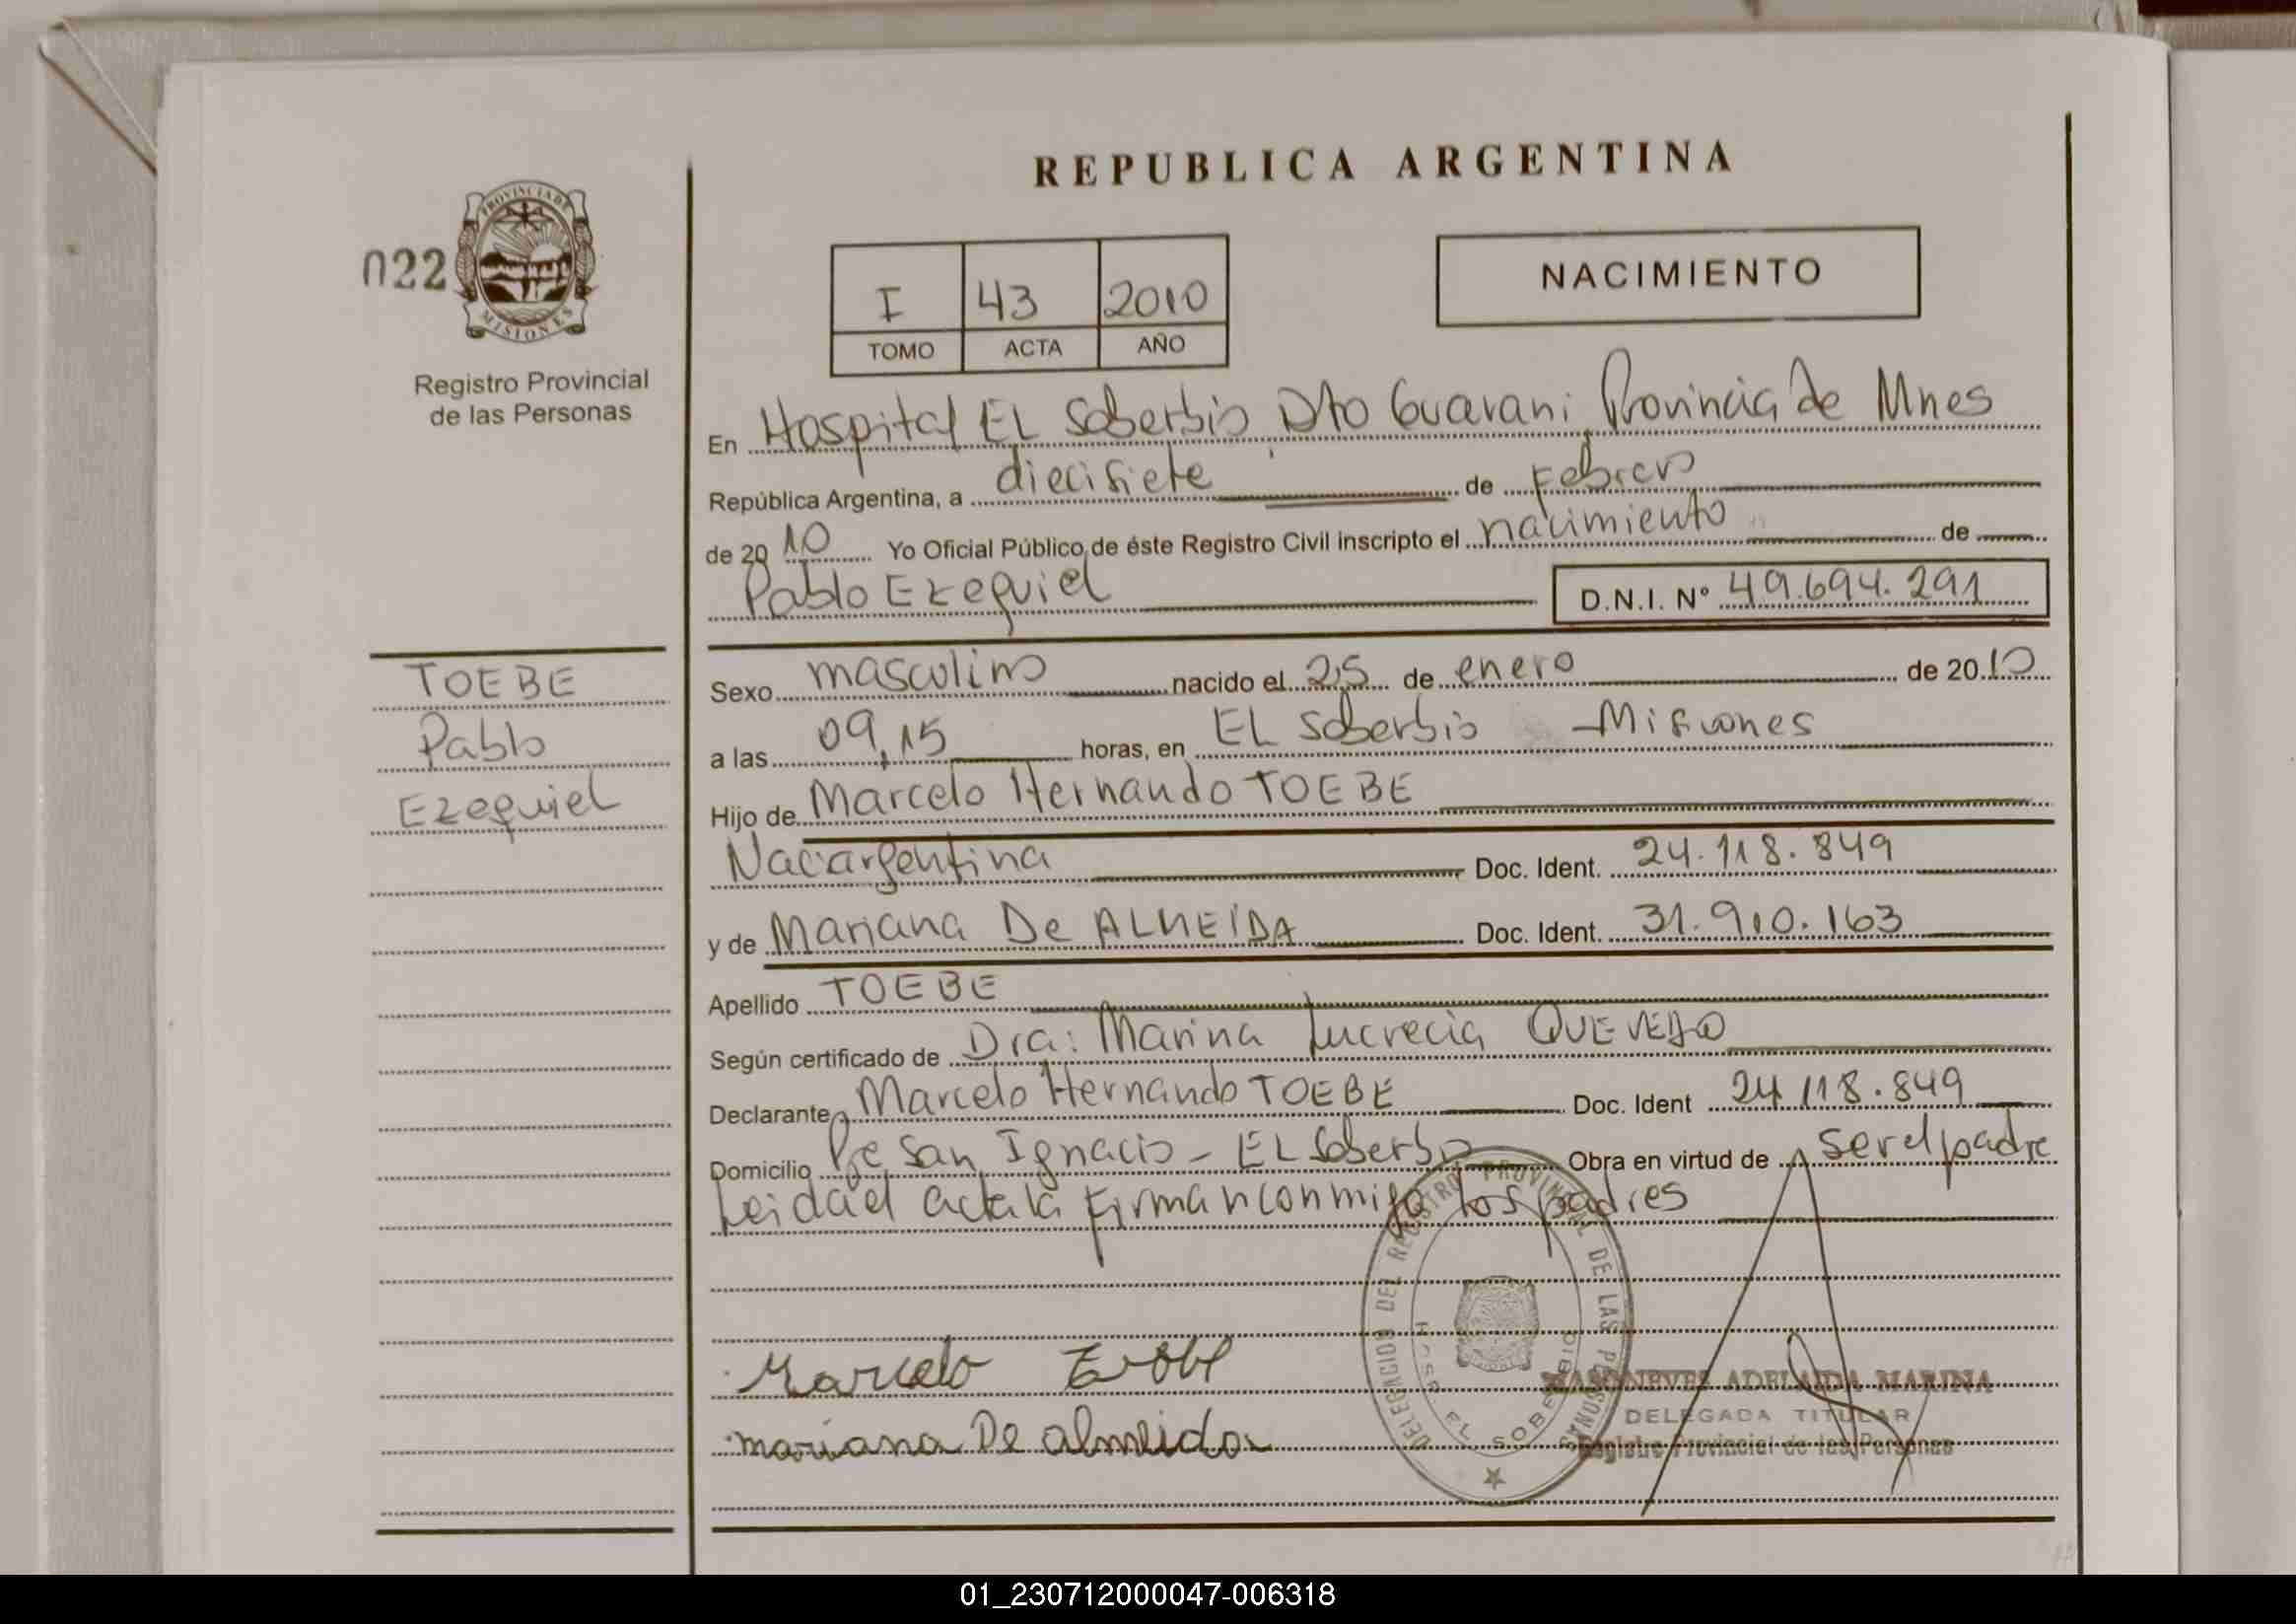 REPUBLICA ARGENTINA
022
PROVINCIA DE
MISIONES
Registro Provincial
de las Personas
I 43 2010
TOMO ACTA AÑO
NACIMIENTO
En Hospital EL Soberbio Dto Guarani Provincia de Mnes
República Argentina, a diecisiete de Febrero
de 2010 Yo Oficial Público de éste Registro Civil inscripto el nacimiento de
Pablo Ezequiel D.N.I. Nº 49.694.291
TOEBE
Pablo
Ezequiel
Sexo masculino nacido el 25 de enero de 2010
a las 09,15 horas, en EL Soberbio - Misiones
Hijo de Marcelo Hernando TOEBE
Nac argentina Doc. Ident. 24.118.849
y de Mariana De ALMEIDA Doc. Ident. 31.910.163
Apellido TOEBE
Según certificado de Dra: Marina Lucrecia QUEVEDO
Declarante Marcelo Hernando TOEBE Doc. Ident 24.118.849
Domicilio Pje San Ignacio - EL Soberbio Obra en virtud de ser el padre
Leida el acta la firman conmigo los padres
DELEGACION DEL REGISTRO PROVINCIAL DE LAS PERSONAS
HOSP. EL SOBERBIO
Marcelo
mariana De almeida
ADELAIDA MARINA
DELEGADA TITULAR
Registro Provincial de las Personas
01_230712000047-006318